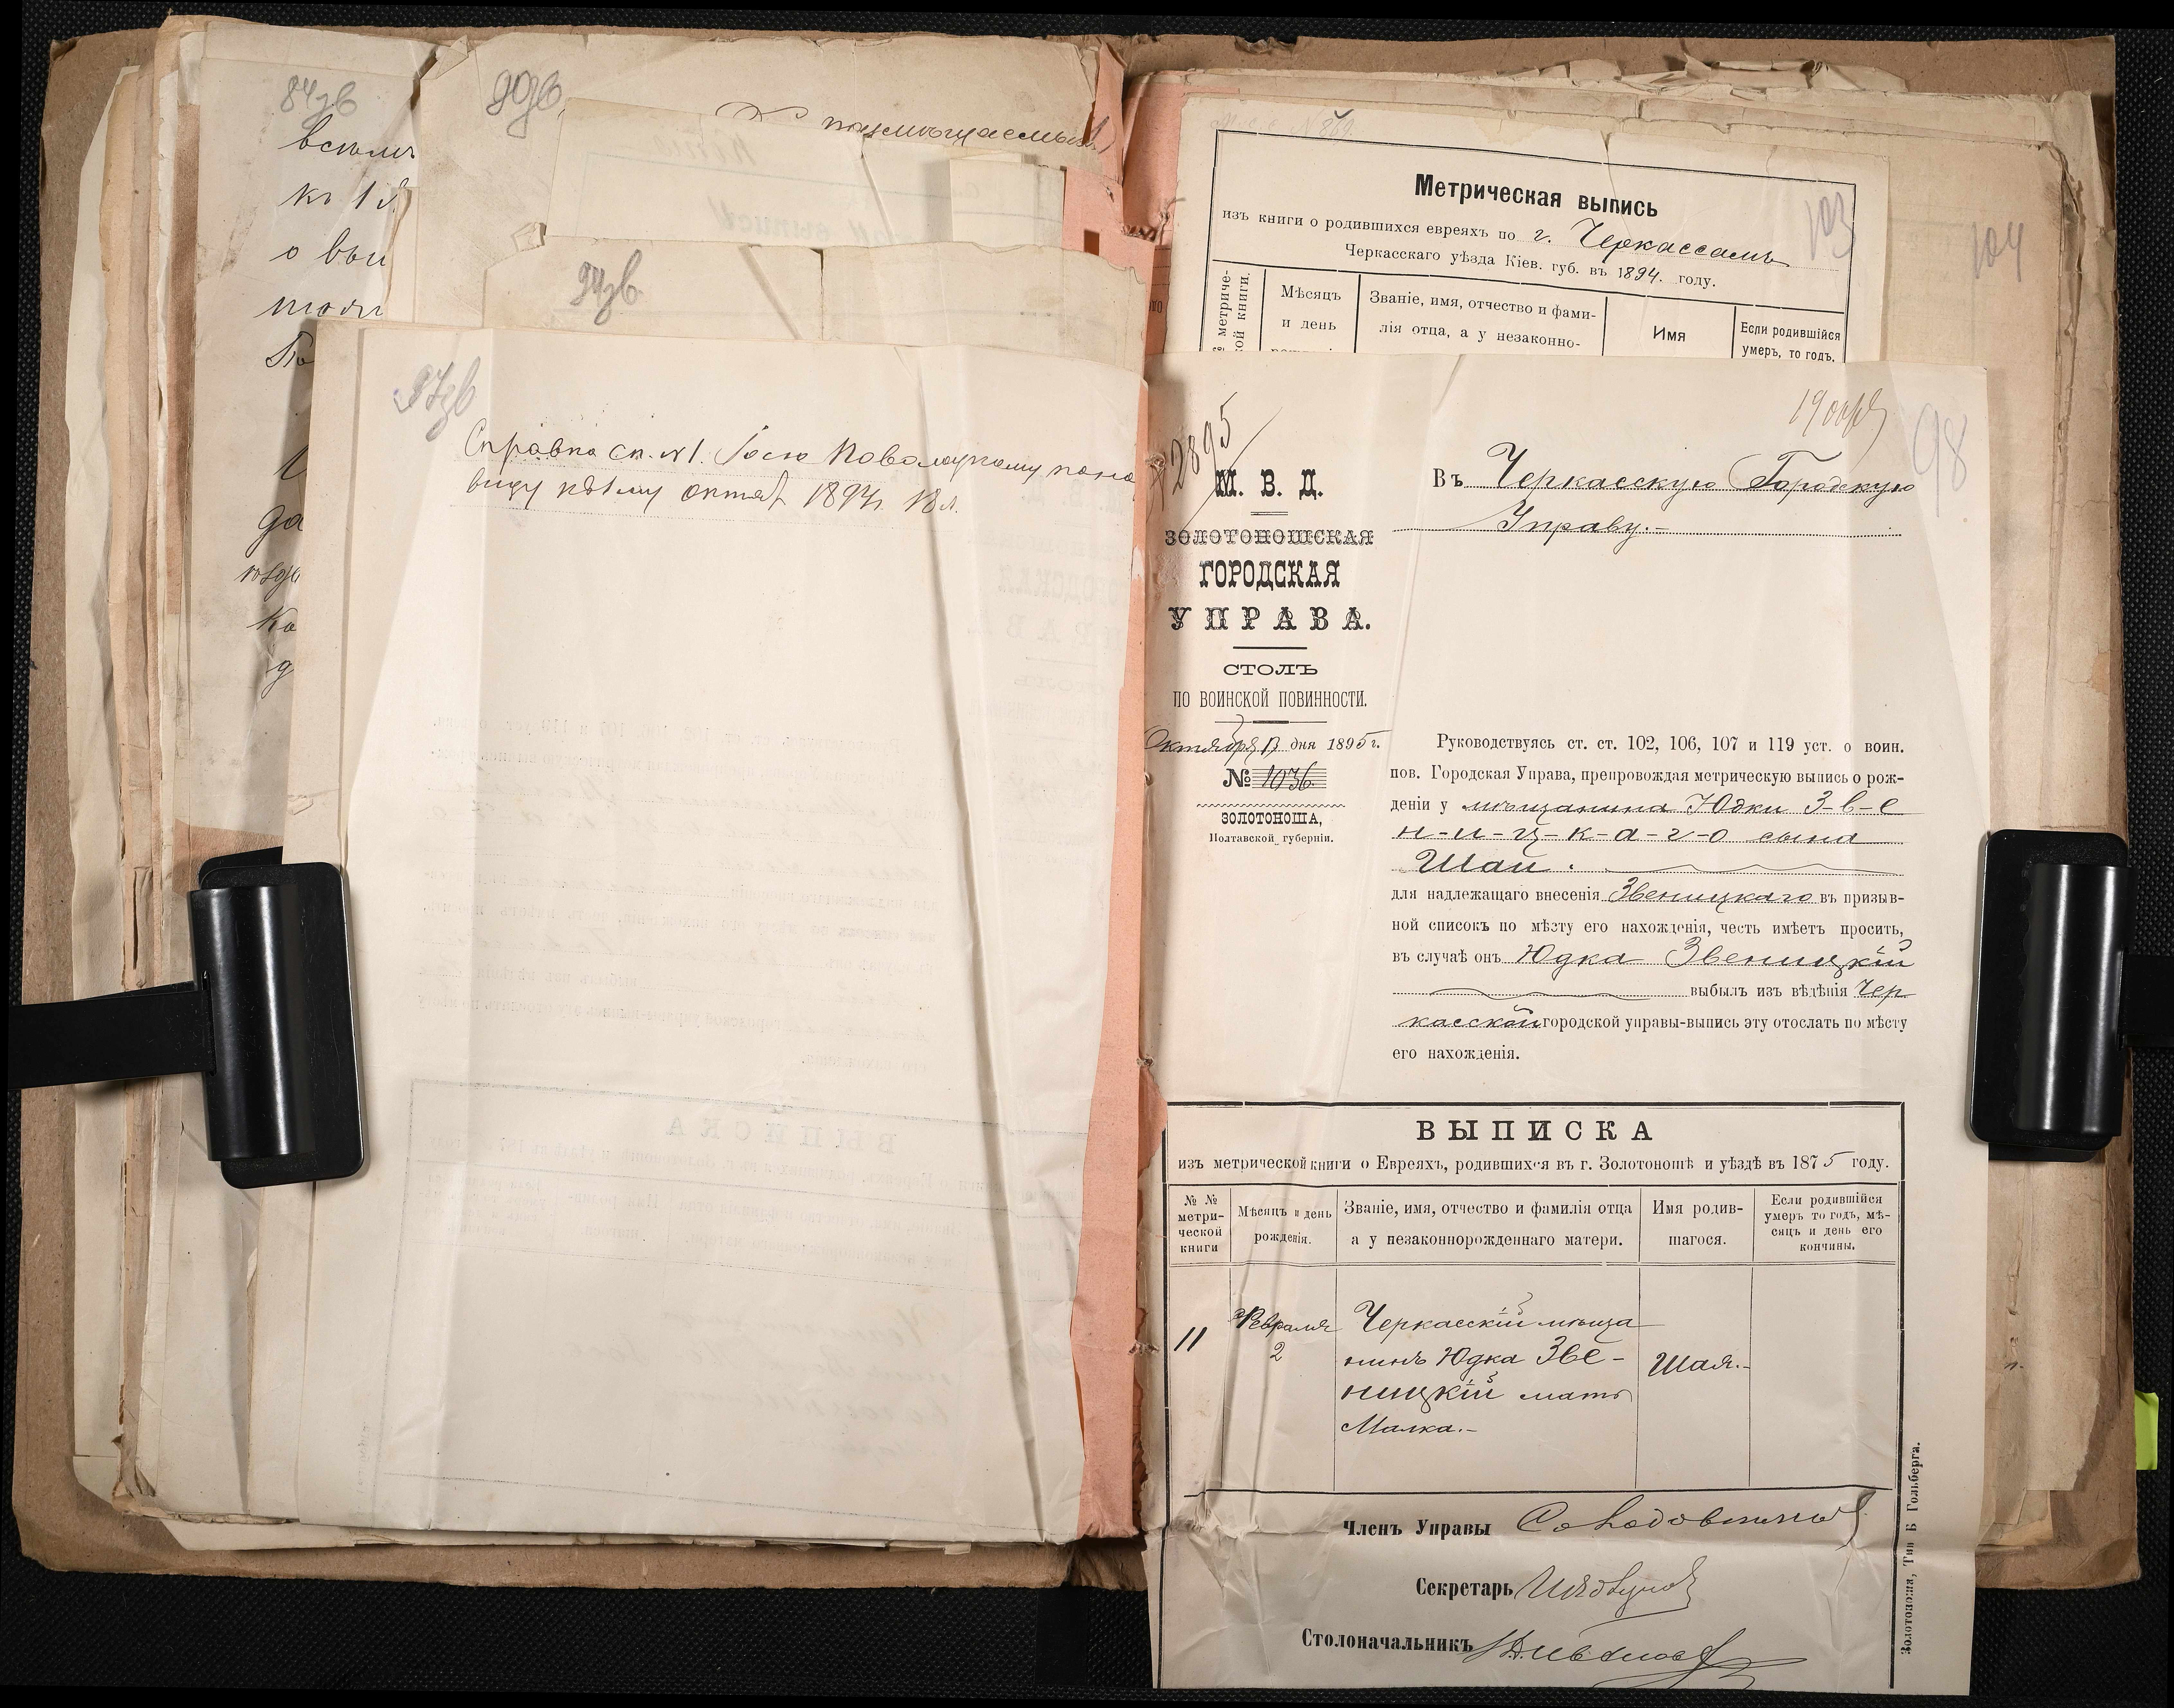 84зв
90зв
къ 1
о вои
94зв
97зв
Справка сп. №1.
виду октяб 1894 г.
Метрическая выпись
103
изъ книги о родившихся евреяхъ по г. Черкассамъ
Черкасскаго уѣзда Кіев. губ. въ 1894. году.
104
метриче-
кой книги.
Мѣсяцъ
и день
Званіе, имя, отчество и фами-
лія отца, а у незаконно-
Имя
Если родившійся
умеръ, то годъ,
98
2895
М. В. Д.
ЗОЛОТОНОШСКАЯ
ГОРОДСКАЯ
УПРАВА.
СТОЛЪ
ПО ВОИНСКОЙ ПОВИННОСТИ.
Октября дня 1895 г.
№ 1036
ЗОЛОТОНОША,
Полтавской губерніи.
Въ Черкасскую Городскую
Управу.-
Руководствуясь ст. ст. 102, 106, 107 и 119 уст. о воин.
пов. Городская Управа, препровождая метрическую выпись о рож-
деніи у мѣщанина Юдки З-в-е
н-и-ц-к-а-г-о сына
Шаи.
для надлежащаго внесенія Звеницкаго въ призыв-
ной списокъ по мѣсту его нахожденія, честь имѣетъ просить,
въ случаѣ онъ Юдка Звеницкій
выбылъ изъ вѣдѣнія Чер
касской городской управы-выпись эту отослать по мѣсту
его нахожденія.
ВЫПИСКА
изъ метрической книги о Евреяхъ, родившихся въ г. Золотоношѣ и уѣздѣ въ 1875 году.
№ №
метри-
ческой
книги
Мѣсяцъ и день
рожденія.
Званіе, имя, отчество и фамилія отца
а у незаконнорожденнаго матери.
Имя родив-
шагося.
Если родившійся
умеръ то годъ, мѣ-
сяцъ и день его
кончины.
11
Февраля
2
Черкасскій мѣща
нинъ Юдка Зве-
ницкій мать
Малка.-
Шая.-
Членъ Управы
Секретарь
Столоначальникъ
Золотоноша, Тип Б Гольберга.